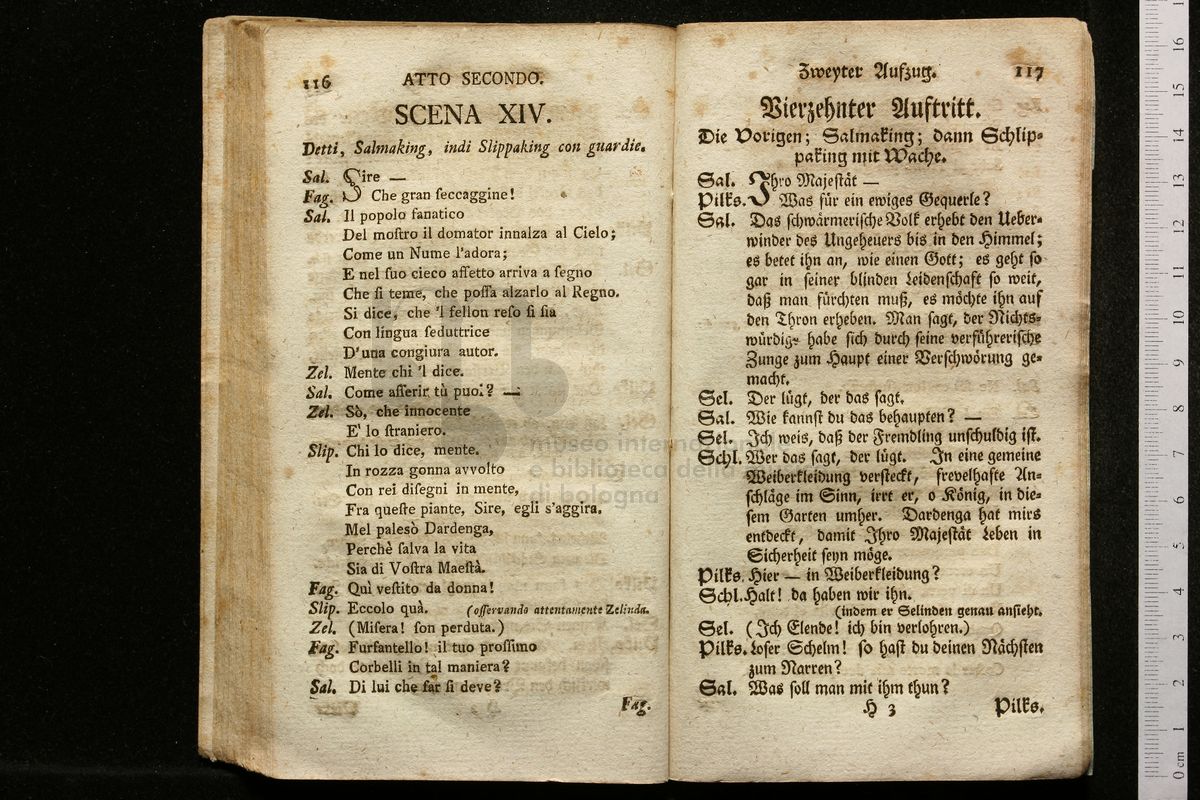 116 ATTO SECONDO.
SCENA XIV.
Detti, Salmaking, indi Slippaking con guardie.
Sal. Sire —
Fag. Che gran ſeccaggine!
Sal. Il popolo fanatico
Del moſtro il domator innalza al Cielo;
Come un Nume l'adora;
E nel ſuo cieco affetto arriva a ſegno
Che ſi teme, che poſſa alzarlo al Regno.
Si dice, che 'l fellon reſo ſi ſia
Con lingua ſeduttrice
D'una congiura autor.
Zel. Mente chi 'l dice.
Sal. Come aſſerir tù puoi? —
Zel. Sò, che innocente
E' lo ſtraniero.
Slip. Chi lo dice, mente.
In rozza gonna avvolto
Con rei diſegni in mente,
Fra queſte piante, Sire, egli s'aggira.
Mel palesò Dardenga,
Perchè ſalva la vita
Sia di Voſtra Maeſtà.
Fag. Quì veſtito da donna!
Slip. Eccolo quà. (oſſervando attentamente Zelinda.
Zel. (Miſera! ſon perduta.)
Fag. Furfantello! il tuo proſſimo
Corbelli in tal maniera?
Sal. Di lui che far ſi deve?
Fag.
Zweyter Aufzug. 117
Vierzehnter Auftritt.
Die Vorigen; Salmaking; dann Schlip-
paking mit Wache.
Sal. Ihro Majeſtät —
Pilks. Was für ein ewiges Gequerle?
Sal. Das ſchwärmeriſche Volk erhebt den Ueber-
winder des Ungeheuers bis in den Himmel;
es betet ihn an, wie einen Gott; es geht ſo
gar in ſeiner blinden Leidenſchaft ſo weit,
daß man fürchten muß, es möchte ihn auf
den Thron erheben. Man ſagt, der Nichts-
würdige habe ſich durch ſeine verführeriſche
Zunge zum Haupt einer Verſchwörung ge-
macht.
Sel. Der lügt, der das ſagt.
Sal. Wie kannſt du das behaupten? —
Sel. Ich weis, daß der Fremdling unſchuldig iſt.
Schl. Wer das ſagt, der lügt. In eine gemeine
Weiberkleidung verſteckt, frevelhafte An-
ſchläge im Sinn, irrt er, o König, in die-
ſem Garten umher. Dardenga hat mirs
entdeckt, damit Ihro Majeſtät Leben in
Sicherheit ſeyn möge.
Pilks. Hier — in Weiberkleidung?
Schl. Halt! da haben wir ihn.
(indem er Selinden genau anſieht.
Sel. (Ich Elende! ich bin verlohren.)
Pilks. Loſer Schelm! ſo haſt du deinen Nächſten
zum Narren?
Sal. Was ſoll man mit ihm thun?
H 3 Pilks.
museo internazionale
e biblioteca della
di bologna
0 cm 1 2 3 4 5 6 7 8 9 10 11 12 13 14 15 16